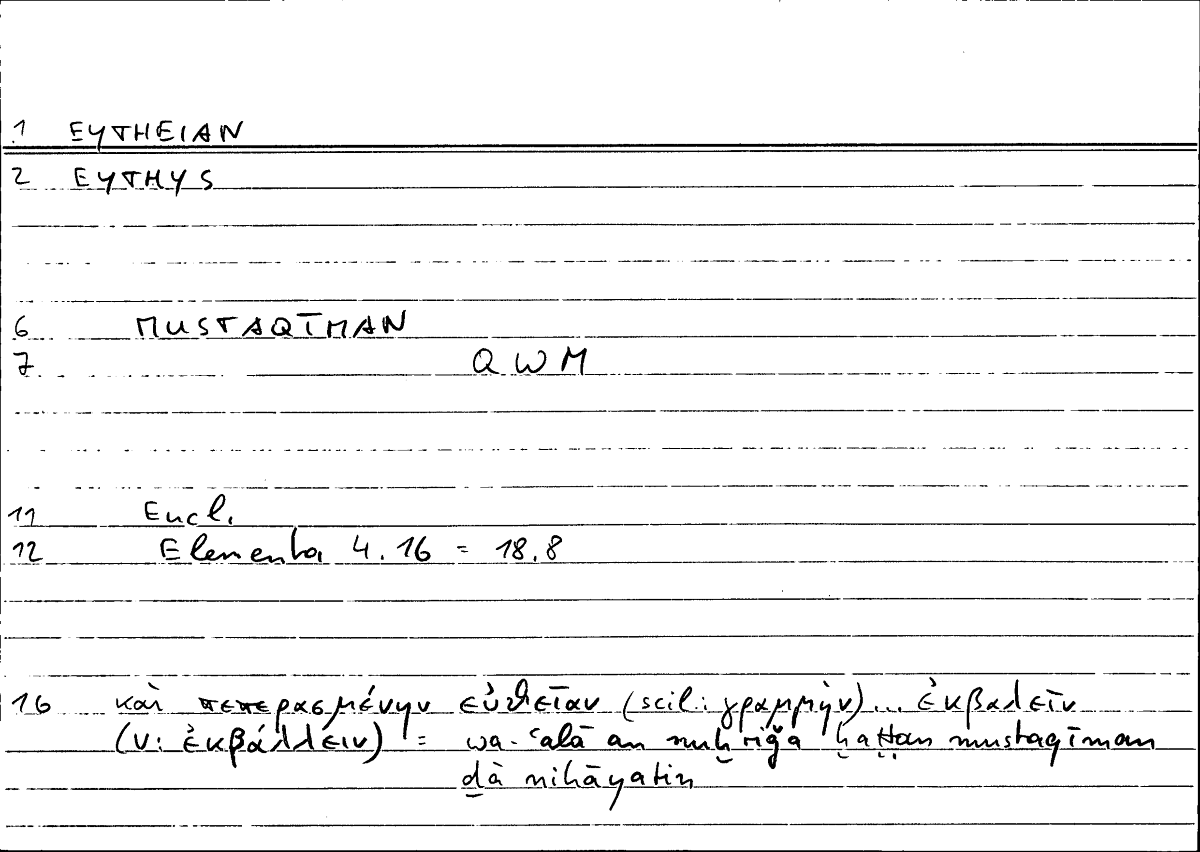 1 EYTHEIAN
2 EYTHYS
6 MUSTAQĪMAN
7 QWM
11 Eucl.
12 Elementa 4.16 = 18.8
16 καὶ πεπερασμένην εὐθεῖαν (scil: γραμμὴν)... ἐκβαλεῖν
(v: ἐκβάλλειν) = wa-ʿalā an nuḫriǧa ḫaṭṭan mustaqīman
ḏā nihāyatin